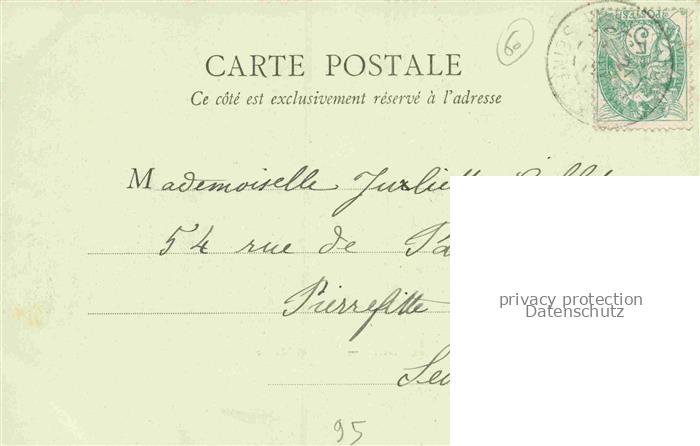 CARTE POSTALE
Ce côté est exclusivement réservé à l'adresse
Mademoiselle Juliette
54 rue de
Pierrefitte
privacy protection
Datenschutz
95
POSTES
SEINE